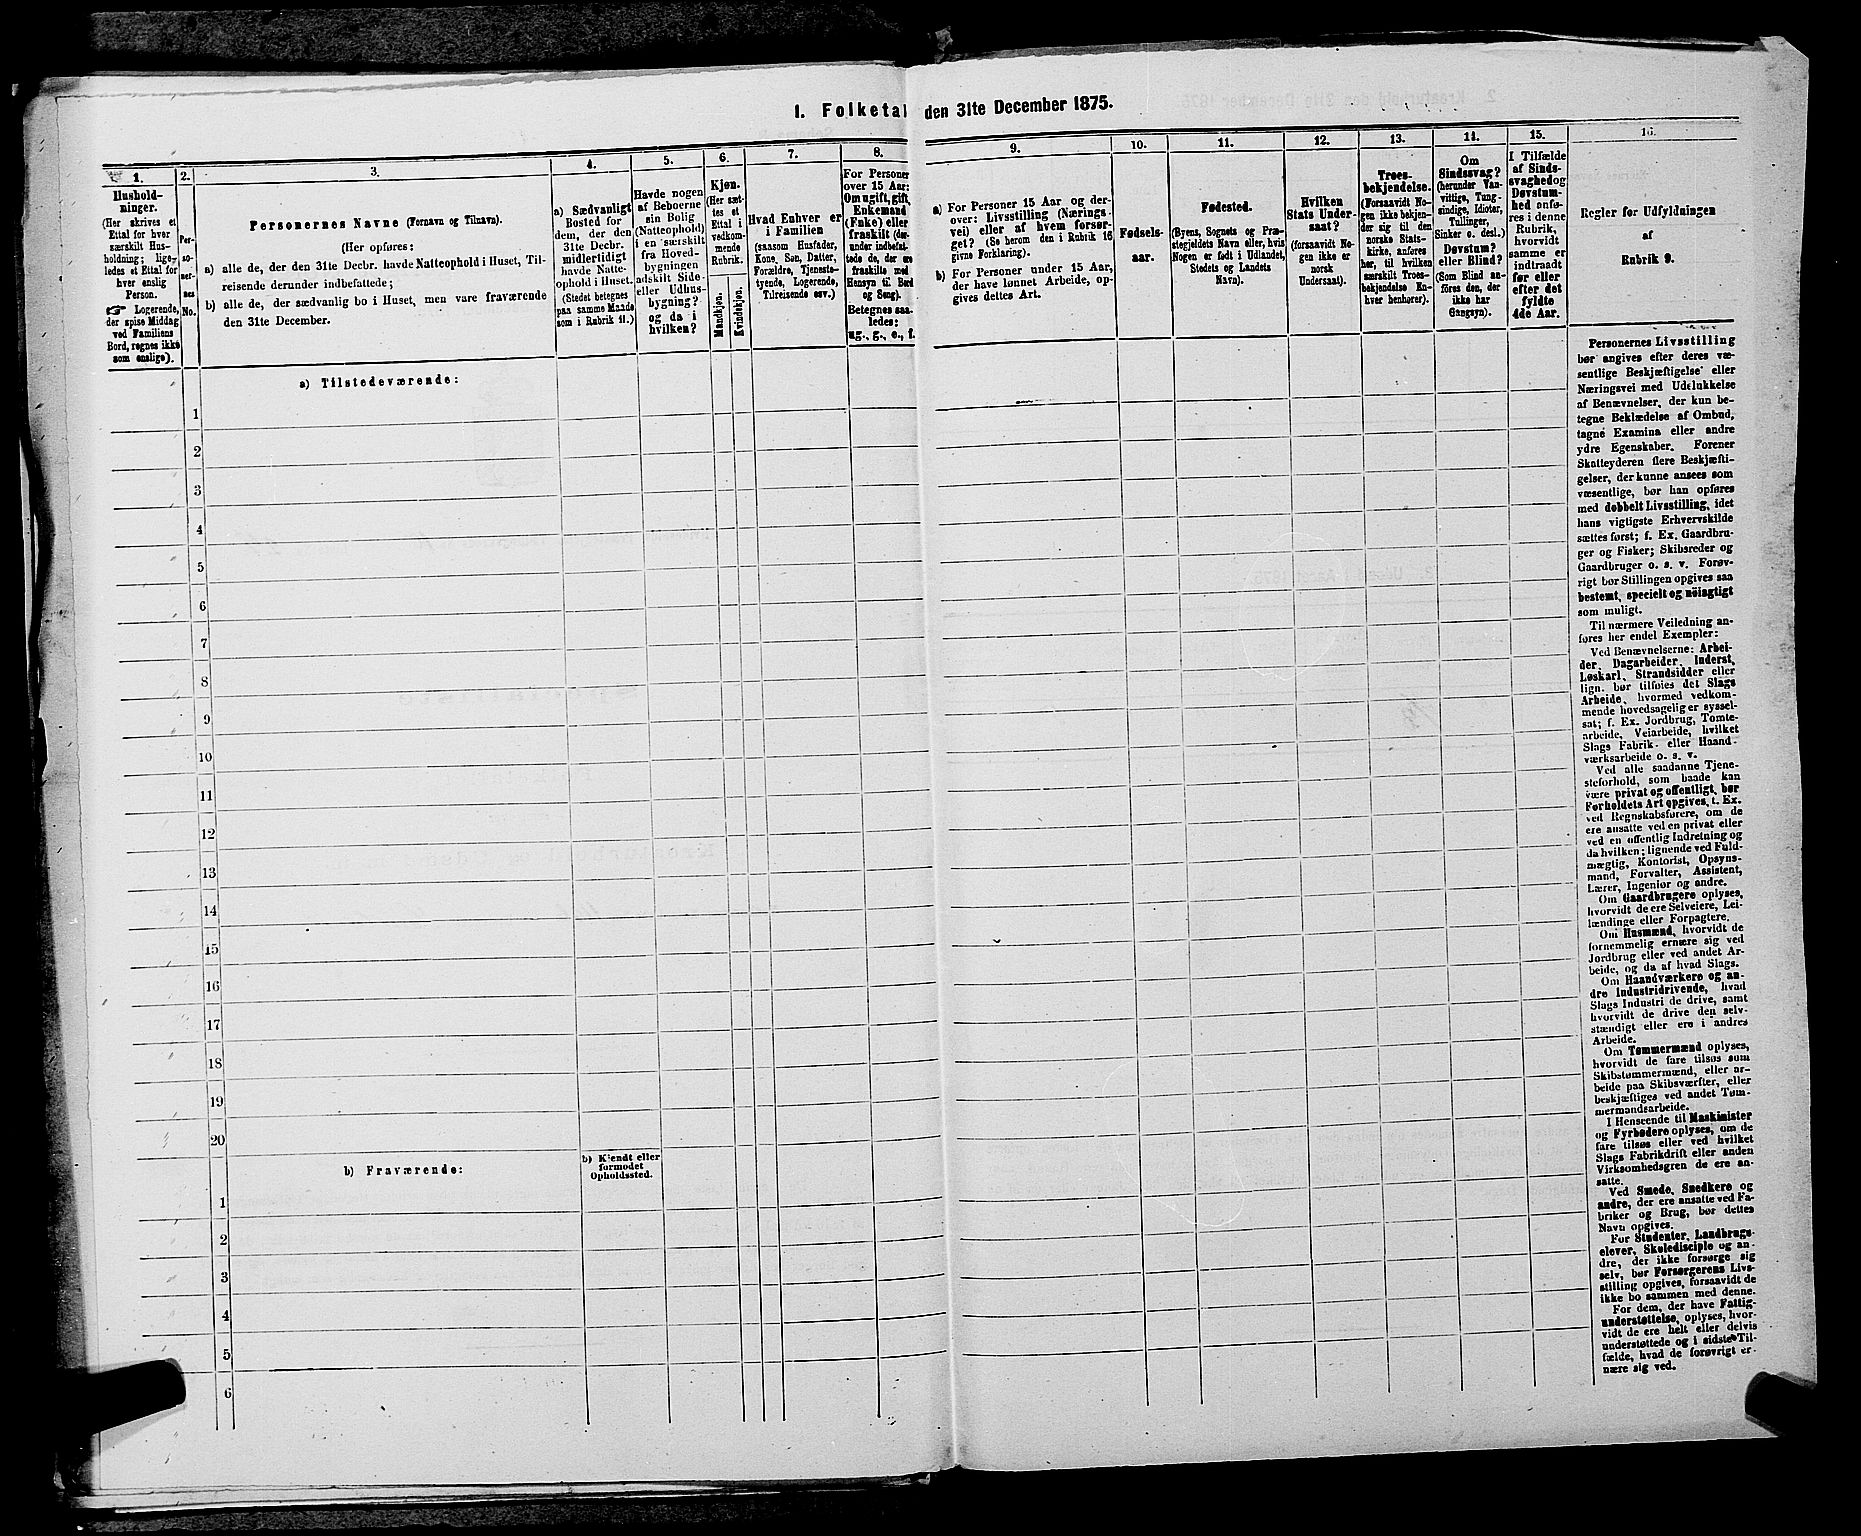 I. Folketal den 31te December 1875.
1.
Hushold-
ninger.
(Her skrives et
Ettal for hver
særskilt Hus-
holdning; lige-
ledes et Ettal for
hver enslig
Person.
☞ Logerende,
der spise Middag
ved Familiens
Bord, regnes ikke
som enslige).
2.
Per-
so-
ner-
nes
No.
3.
Personernes Navne (Fornavn og Tilnavn).
(Her opføres:
a) alle de, der den 31te Decbr. havde Natteophold i Huset, Til-
reisende derunder indbefattede;
b) alle de, der sædvanlig bo i Huset, men vare fraværende
den 31te December.
4.
a) Sædvanligt
Bosted for
dem, der den
31te Decbr.
midlertidigt
havde Natte-
ophold i Huset.
(Stedet betegnes
paa samme Maade
som i Rubrik 11.)
5.
Havde nogen
af Beboerne
sin Bolig
(Natteophold)
i en særskilt
fra Hoved-
bygningen
adskilt Side-
eller Udhus-
bygning?
og da i
hvilken?
6.
Kjøn.
(Her sæt-
tes et
Ettal i
vedkom-
mende
Rubrik.
Mandkjøn.
Kvindekjøn.
7.
Hvad Enhver er
i Familien
(saasom Husfader,
Kone, Søn, Datter,
Forældre, Tjeneste-
tyende, Logerende,
Tilreisende osv.)
8.
For Personer
over 15 Aar:
Om ugift, gift,
Enkemand
(Enke) eller
fraskilt (der-
under indbefat-
tede de, der ere
fraskilte med
Hensyn til Bord
og Seng).
Betegnes saa-
ledes:
ug., g., e., f.
9.
a) For Personer 15 Aar og der-
over: Livsstilling (Nærings-
vei) eller af hvem forsør-
get? (Se herom den i Rubrik 16
givne Forklaring).
b) For Personer under 15 Aar,
der have lønnet Arbeide, op-
gives dettes Art.
10.
Fødsels-
aar.
11.
Fødested.
(Byens, Sognets og Præ-
stegjeldets Navn eller, hvis
Nogen er født i Udlandet,
Stedets og Landets
Navn).
12.
Hvilken
Stats Under-
saat?
(forsaavidt No-
gen ikke er
norsk
Undersaat).
13.
Troes-
bekjendelse.
(Forsaavidt No-
gen ikke bekjen-
der sig til den
norske Stats-
kirke, anføres
her, til hvilken
særskilt Troes-
bekjendelse En-
hver henhører).
14.
Om
Sindssvag?
(herunder Van-
vittige, Tung-
sindige, Idioter,
Tullinger,
Sinker o. desl.)
Døvstum?
eller Blind?
(Som Blind an-
føres den, der
ikke har
Gangsyn).
15.
I Tilfælde
af Sinds-
svaghed og
Døvstum-
hed onfø-
res i denne
Rubrik,
hvorvidt
samme er
indtraadt
før eller
efter det
fyldte
4de Aar.
16.
Regler for Udfyldningen
af
Rubrik 9.
a) Tilstedeværende:
1
2
3
4
5
6
7
8
9
10
11
12
13
14
15
16
17
18
19
20
b) Fraværende:
b) Kjendt eller
formodet
Opholdssted.
1
2
3
4
5
6
Personernes Livsstilling
bør angives efter deres væ-
sentlige Beskjæftigelse eller
Næringsvei med Udelukkelse
af Benævnelser, der kun be-
tegne Beklædelse af Ombud,
tagne Examina eller andre
ydre Egenskaber. Forener
Skatteyderen flere Beskjæfti-
gelser, der kunne ansees som
væsentlige, bør han opføres
med dobbelt Livsstilling, idet
hans vigtigste Erhvervskilde
sættes først; f. Ex. Gaardbru-
ger og Fisker; Skibsreder og
Gaardbruger o. s. v. Forøv-
rigt bør Stillingen opgives saa
bestemt, specielt og nøiagtigt
som muligt.
Til nærmere Veiledning an-
føres her endel Exempler:
Ved Benævnelserne: Arbei-
der, Dagarbeider, Inderst,
Løskarl, Strandsidder eller
lign. bør tilføies det Slags
Arbeide, hvormed vedkom-
mende hovedsagelig er syssel-
sat; f. Ex. Jordbrug, Tomte-
arbeide, Veiarbeide, hvilket
Slags Fabrik- eller Haand-
værksarbeide o. s. v.
Ved alle saadanne Tjene-
steforhold, som baade kan
være privat og offentligt, bør
Forholdets Art opgives, f. Ex.
ved Regnskabsførere, om de
ere ansatte ved en privat eller
ved en offentlig Indretning og
da hvilken; lignende ved Fuld-
mægtig, Kontorist, Opsyns-
mand, Forvalter, Assistent,
Lærer, Ingeniør og andre.
Om Gaardbrugere oplyses,
hvorvidt de ere Selveiere, Lei-
lændinge eller Forpagtere.
Om Husmænd, hvorvidt de
fornemmelig ernære sig ved
Jordbrug eller ved andet Ar-
beide, og da af hvad Slags.
Om Haandværkere og an-
dre Industridrivende, hvad
Slags Industri de drive, samt
hvorvidt de drive den selv-
stændigt eller ere i andres
Arbeide.
Om Tømmermænd oplyses,
hvorvidt de fare tilsøs som
Skibstømmermænd, eller ar-
beide paa Skibsværfter, eller
beskjæftiges ved andet Tøm-
mermandsarbeide.
I Henseende til Maskinister
og Fyrbødere oplyses, om de
fare tilsøs eller ved hvilket
Slags Fabrikdrift eller anden
Virksomhedsgren de ere an-
satte.
Ved Smede, Snedkere og
andre, der ere ansatte ved Fa-
briker og Brug, bør dettes
Navn opgives.
For Studenter, Landbrugs-
elever, Skoledisciple og an-
dre, der ikke forsørge sig
selv, bør Forsørgerens Livs-
stilling opgives, forsaavidt de
ikke bo sammen med denne.
For dem, der have Fattig-
understøttelse, oplyses, hvor-
vidt de ere helt eller delvis
understøttede og i sidste Til-
fælde, hvad de forøvrigt er-
nære sig ved.